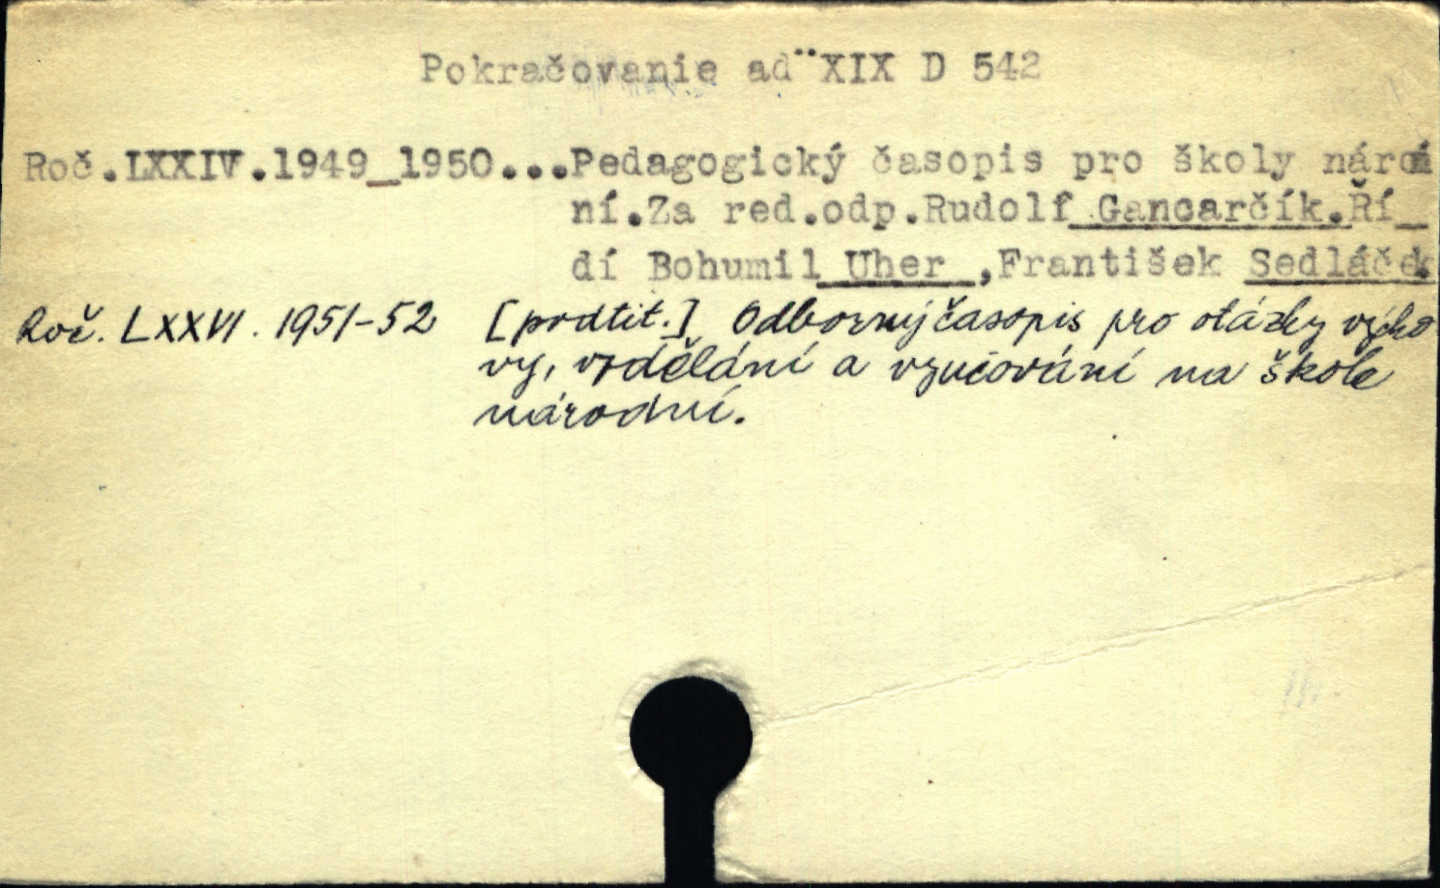 Pokračovanie ad¨XIX D 542
Roč.LXXIV.1949_1950...Pedagogický časopis pro školy národ
ní.Za red.odp.Rudolf Gancarčík.Ří_
dí Bohumil Uher ,František Sedláček
Roč. LXXVI. 1951-52 [podtit.] Odborný časopis pro otázky výcho
vy, vzdělání a vyučování na škole
národní.